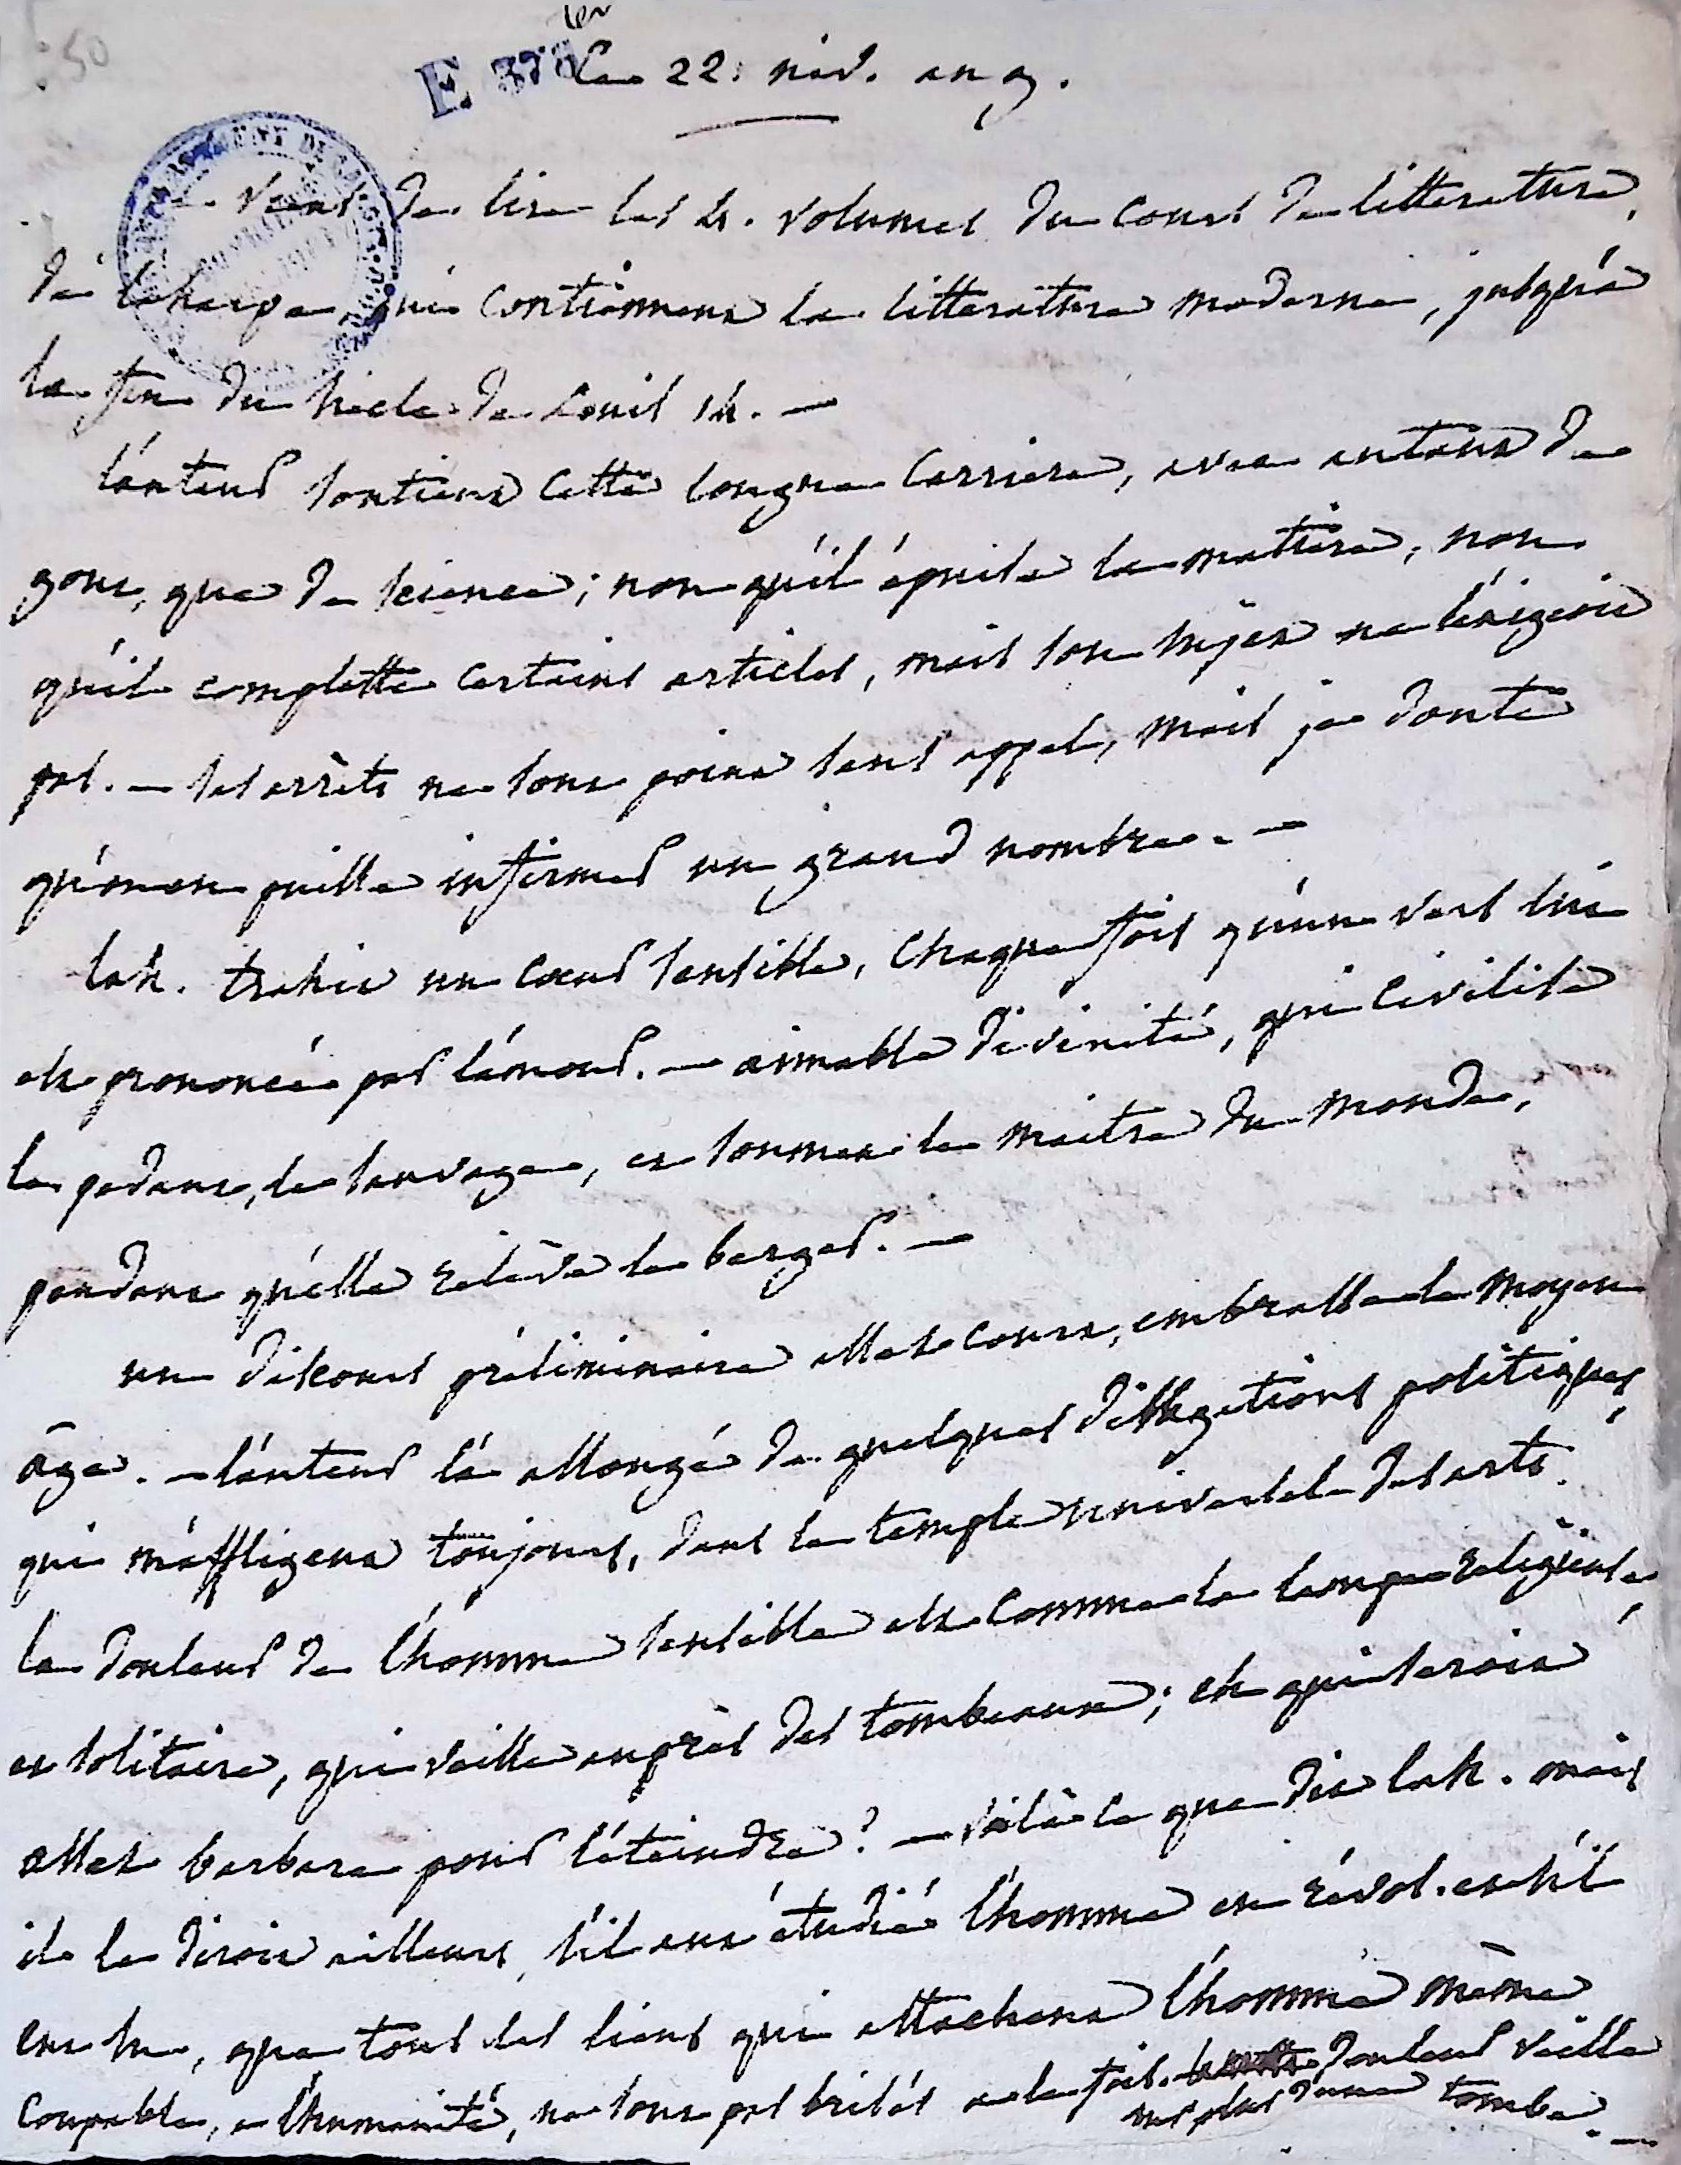 50
E 378
Le 22. niv. an 9.
viens de lire les 4. volumes du cours de litterature,
de laharpe, qui contiennent la litterature moderne, jusqu'à
la fin du siecle de Louis 14. —
l'auteur soutient cette longue carriere, avec autant de
gout, que de science ; non qu'il épuise la matiere, non
qu'il complette certains articles, mais son sujet ne l'exigeoit
pas. — ses arrêts ne sont point sans appel, mais je doute
qu'on en puisse infirmer un grand nombre. —
lah. trahit un cœur sensible, chaque fois qu'un vers lui
est prononcé par l'amour. — aimable divinité, qui civilise
le pedant, le sauvage, et soumet le maitre du monde,
pendant qu'elle releve le berger. —
un discours préliminaire assez court, embrasse le moyen
âge. — l'auteur l'a allongé de quelques divagations politiques,
qui m'affligent toujours, dans le temple universel des arts.
la douleur de l'homme sensible est comme la lampe religieuse,
et solitaire, qui veille auprès des tombeaux ; eh qui seroit
assez barbare pour l'éteindre ? — voilà ce que dit lah. mais
il le diroit ailleurs, s'il eut étudié l'homme en révol. et s'il
eut su, que tous les liens qui attachent l'homme même
coupable, a l'humanité, ne sont pas brisés a la fois. douleur veille
sur plus d'une tombe. —